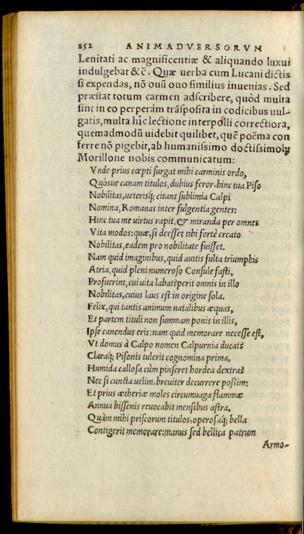 252 ANIMADVERSORVM
Lenitati ac magnificentiæ & aliquando luxui
indulgebat &c̃. Quæ uerba cum Lucani dictis
si expendas, nō ouū ouo similius inuenias. Sed
præstat totum carmen adscribere, quòd multa
sint in eo perperàm trāsposita in codicibus uul-
gatis, multa hîc lectione interpolli correctiora,
quemadmodū uidebit quilibet, quē poëma con
ferre nō pigebit, ab humanissimo doctissimoq;
Morillone nobis communicatum:
Vnde prius cœpti surgat mihi carminis ordo,
Quósue canam titulos, dubius feror. hinc tua Piso
Nobilitas, ueterisq; citant sublimia Calpi
Nomina, Romanas inter fulgentia gentes:
Hinc tua me uirtus rapit, & miranda per omnes
Vita modos: quæ, si deesset tibi fortè creato
Nobilitas, eadem pro nobilitate fuisset.
Nam quid imaginibus, quid auitis fulta triumphis
Atria, quid pleni numeroso Consule fasti,
Profuerint, cui uita labat? perit omnis in illo
Nobilitas, cuius laus est in origine sola.
Felix, qui tantis animum natalibus æquas,
Et partem tituli non summam ponis in illis,
Ipse canendus eris: nam quid memorare necesse est,
Vt domus à Calpo nomen Calpurnia ducat?
Claraq; Pisonis tulerit cognomina prima,
Humida callosa cùm pinseret hordea dextra?
Nec si cuncta uelim, breuiter decurrere possim:
Et prius æthereæ moles circumuaga flammæ
Annua bissenis reuocabit mensibus astra,
Quàm mihi priscorum titulos, operosaq; bella
Contigerit memorare: manus sed bellica patrum
Arma-